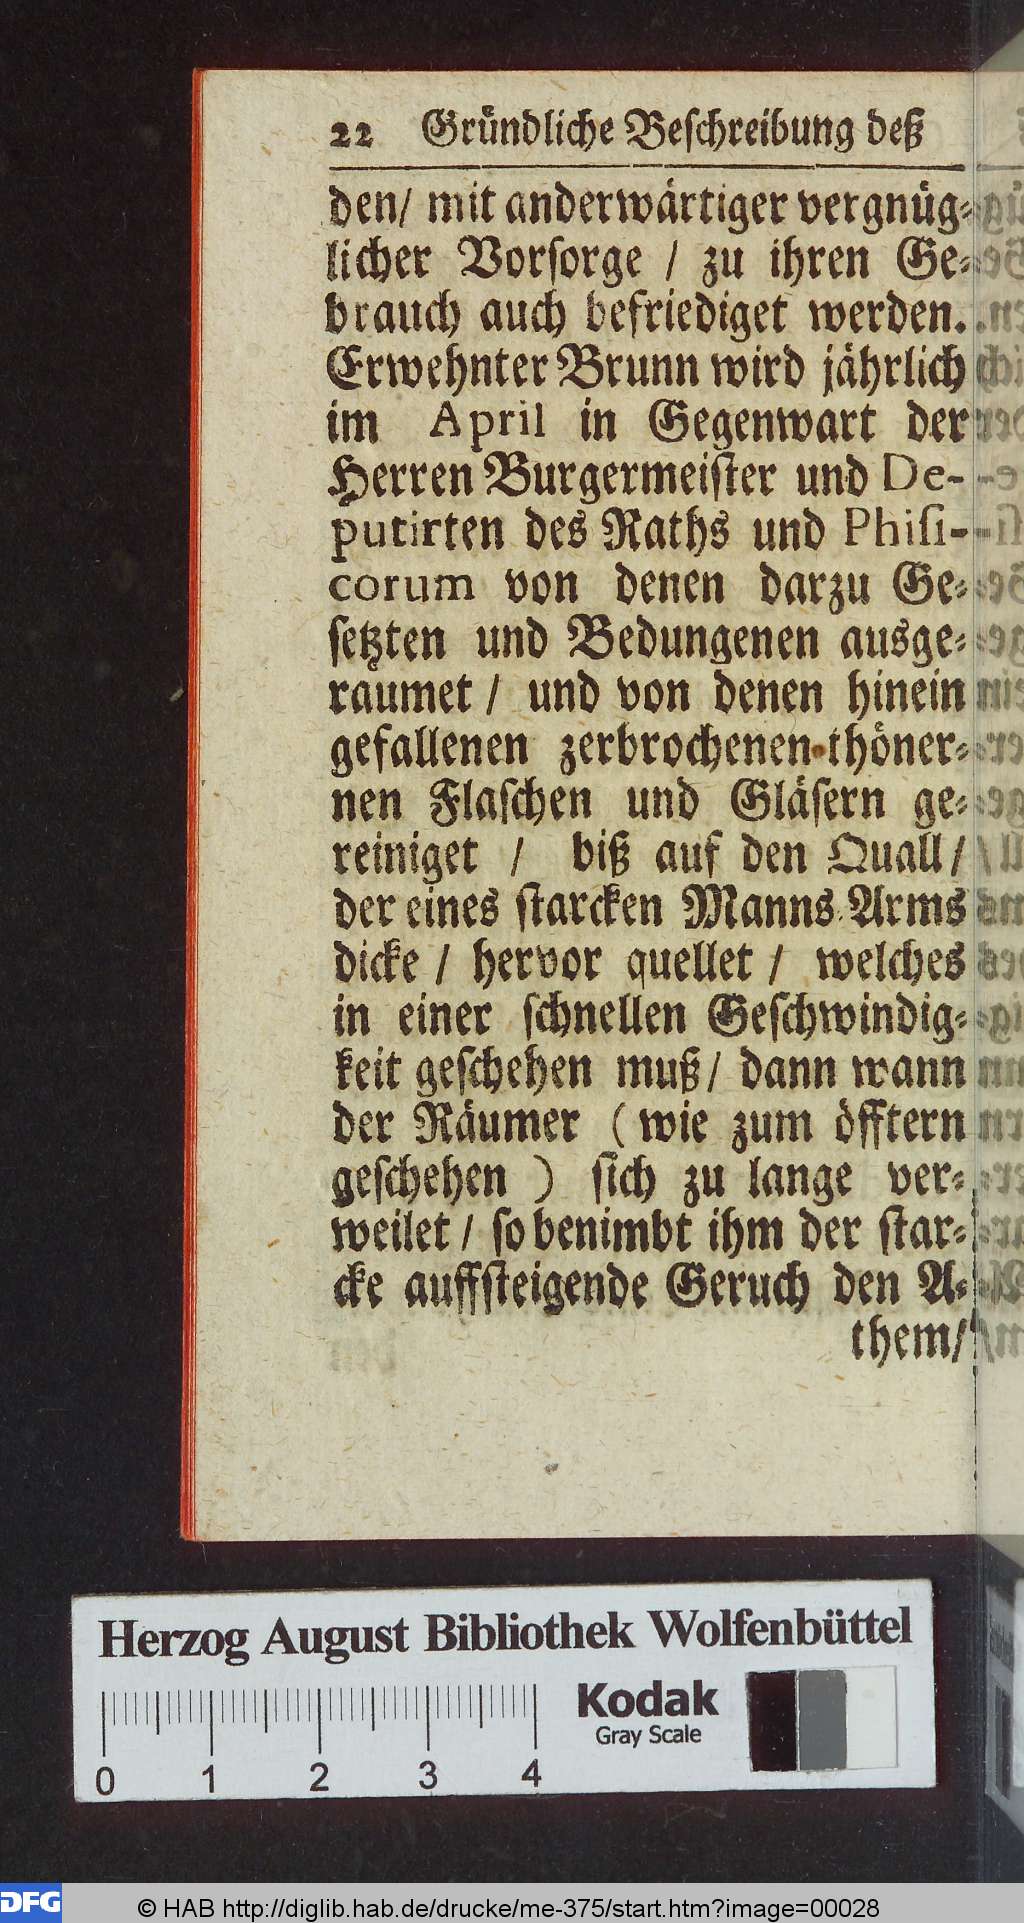 22 Gründliche Beschreibung deß
den/ mit anderwärtiger vergnüg-
licher Vorsorge / zu ihren Ge-
brauch auch befriediget werden.
Erwehnter Brunn wird jährlich
im April in Gegenwart der
Herren Burgermeister und De-
putirten des Raths und Phisi-
corum von denen darzu Ge-
setzten und Bedungenen ausge-
raumet / und von denen hinein
gefallenen zerbrochenen thöner-
nen Flaschen und Gläsern ge-
reiniget / biß auf den Quall /
der eines starcken Manns Arms
dicke / hervor quellet / welches
in einer schnellen Geschwindig-
keit geschehen muß / dann wann
der Räumer ( wie zum öfftern
geschehen ) sich zu lange ver-
weilet / so benimbt ihm der star-
cke auffsteigende Geruch den A-
them/
Herzog August Bibliothek Wolfenbüttel
Kodak
Gray Scale
0 1 2 3 4
DFG
© HAB http://diglib.hab.de/drucke/me-375/start.htm?image=00028